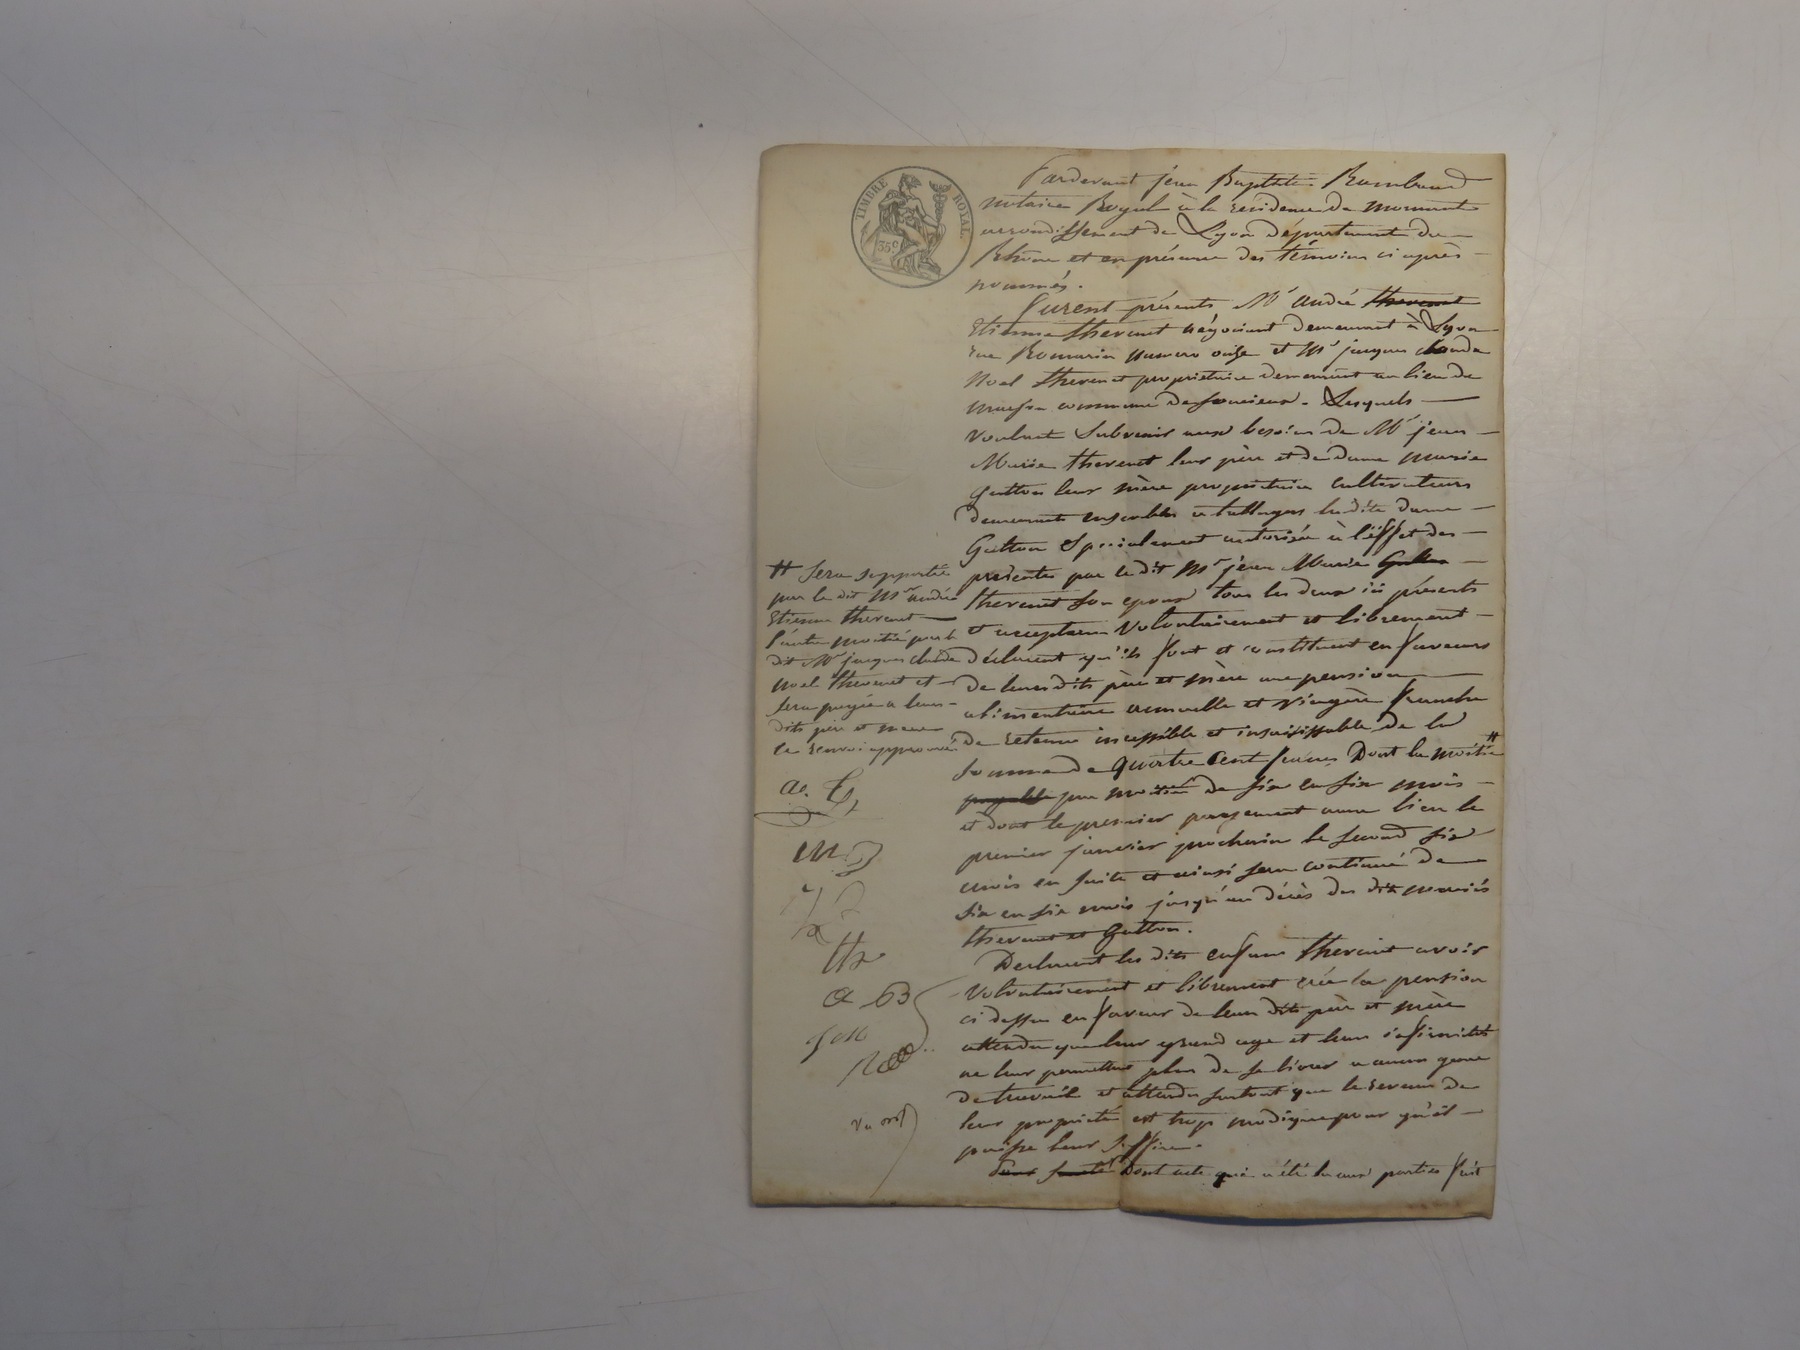 TIMBRE ROYAL.
35c
Pardevant jean Baptiste Rambaud
notaire Royal à la residence de Mornant
arrondissement de Lyon département du
Rhône et en présence des témoins ci après
nommés.
furent présents Mr andré thevenet
Etienne thevenet négociant demeurant à Lyon
rue Romarin numero onze et Mr jacques claude
Noel thevenet propriétaire demeurant au lieu de
commune de soucieux. Lesquels
voulant subvenir aux besoins de Mr jean
Marie thevenet leur père et de dame marie
Gutton leur mère propriétaires cultivateurs
demeurants ensembles a tallayers ladite dame
Gutton Specialement autorisée à l'éffet des
présentes par le dit Mr jean Marie Gutton
thevenet son epoux tous les deux ici présents
et acceptans volontairement et librement
déclarent qu'ils font et constituent en faveurs
de leurs dits père et mère une pension
alimentaire annuelle et viagère franche
de retenue incessible et insaisissable de la
somme de quatre cent francs Dont la moitié #
payable par moitié de six en six mois
et dont le premier payement aura lieu le
premier janvier prochain le second six
mois en suite et ainsi sera continué de
six en six mois jusqu'au décès des dits mariés
thevenet et Gutton.
Declarent les dits enfans thevenet avoir
volontairement et librement créé la pension
ci dessus en faveur de leurs dits père et mère
attendu que leur grand age et leurs infirmités
ne leur permettent plus de se livrer a aucun genre
de travail et attendu surtout que le revenu de
leur propriété est trop modique pour qu'il
puisse leur suffire.
Dont acte qui a été lu aux parties fait
# sera supportée
par le dit Mr andré
Etienne thevenet
l'autre moitié par le
dit Mr jacques claude
noel thevenet et
sera payée a leurs
dits père et mere
ce renvoi approuvé